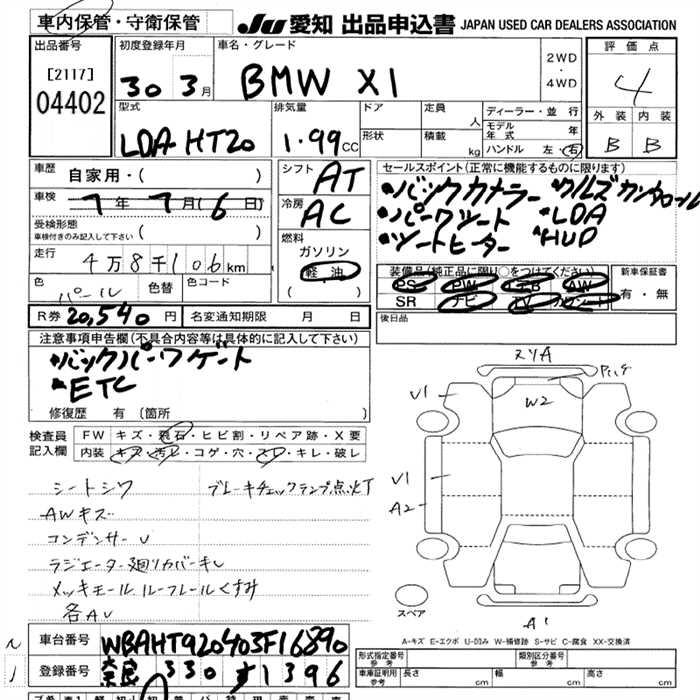 車内保管・守衛保管 JU 愛知 出品申込書 JAPAN USED CAR DEALERS ASSOCIATION
出品番号 初度登録年月 車名・グレード 評価点
[2117] 04402 30 3月 BMW X1 2WD・4WD 4
型式 排気量 ドア 定員 人 ディーラー・並行 外装 内装
LDA HT20 1.99CC 形状 積載 kg モデル年式 年 B B
ハンドル 左・右
車歴 自家用・( ) シフト AT セールスポイント(正常に機能するものに限ります)
車検 7年7月(6日) 冷房 AC
・バックカメラー
受検形態 車検付きのみ記入して下さい ( )
・LDA
・シートヒーター ・HUD
走行 4万8千106km 燃料 ガソリン 軽油 ( )
色 パール 色替 色コード
装備品(純正品に限り○をつけてください) 新車保証書
PS PW エアB AW 有・無
SR ナビ TV カワシート
R券 20,540円 名変通知期限 月 日 後日品
注意事項申告欄(不具合内容等は具体的に記入して下さい)
・バックパーワゲート
・ETC
修復歴 有 (箇所 )
検査員記入欄 FW キズ・飛石・ヒビ割・リペア跡・X要
内装 キズ・汚レ・コゲ・穴・スレ・キレ・破レ
シートシワ ブレーキチェックランプ点灯
AWキズ
コンデンサーU
ラジエーター廻りカバーキレ
メッキモール ルーフレールくすみ
各AU
スリA
U1 W2
U1
A2
スペア
A1
A-キズ E-エクボ U-凹み W-補修跡 S-サビ C-腐食 XX-交換済
車台番号 WBAHT920403F16890
登録番号 奈良 330 す 1396
形式指定番号 参考 類別区分番号 参考
車庫証明用 参考 長さ cm 幅 cm 高さ cm